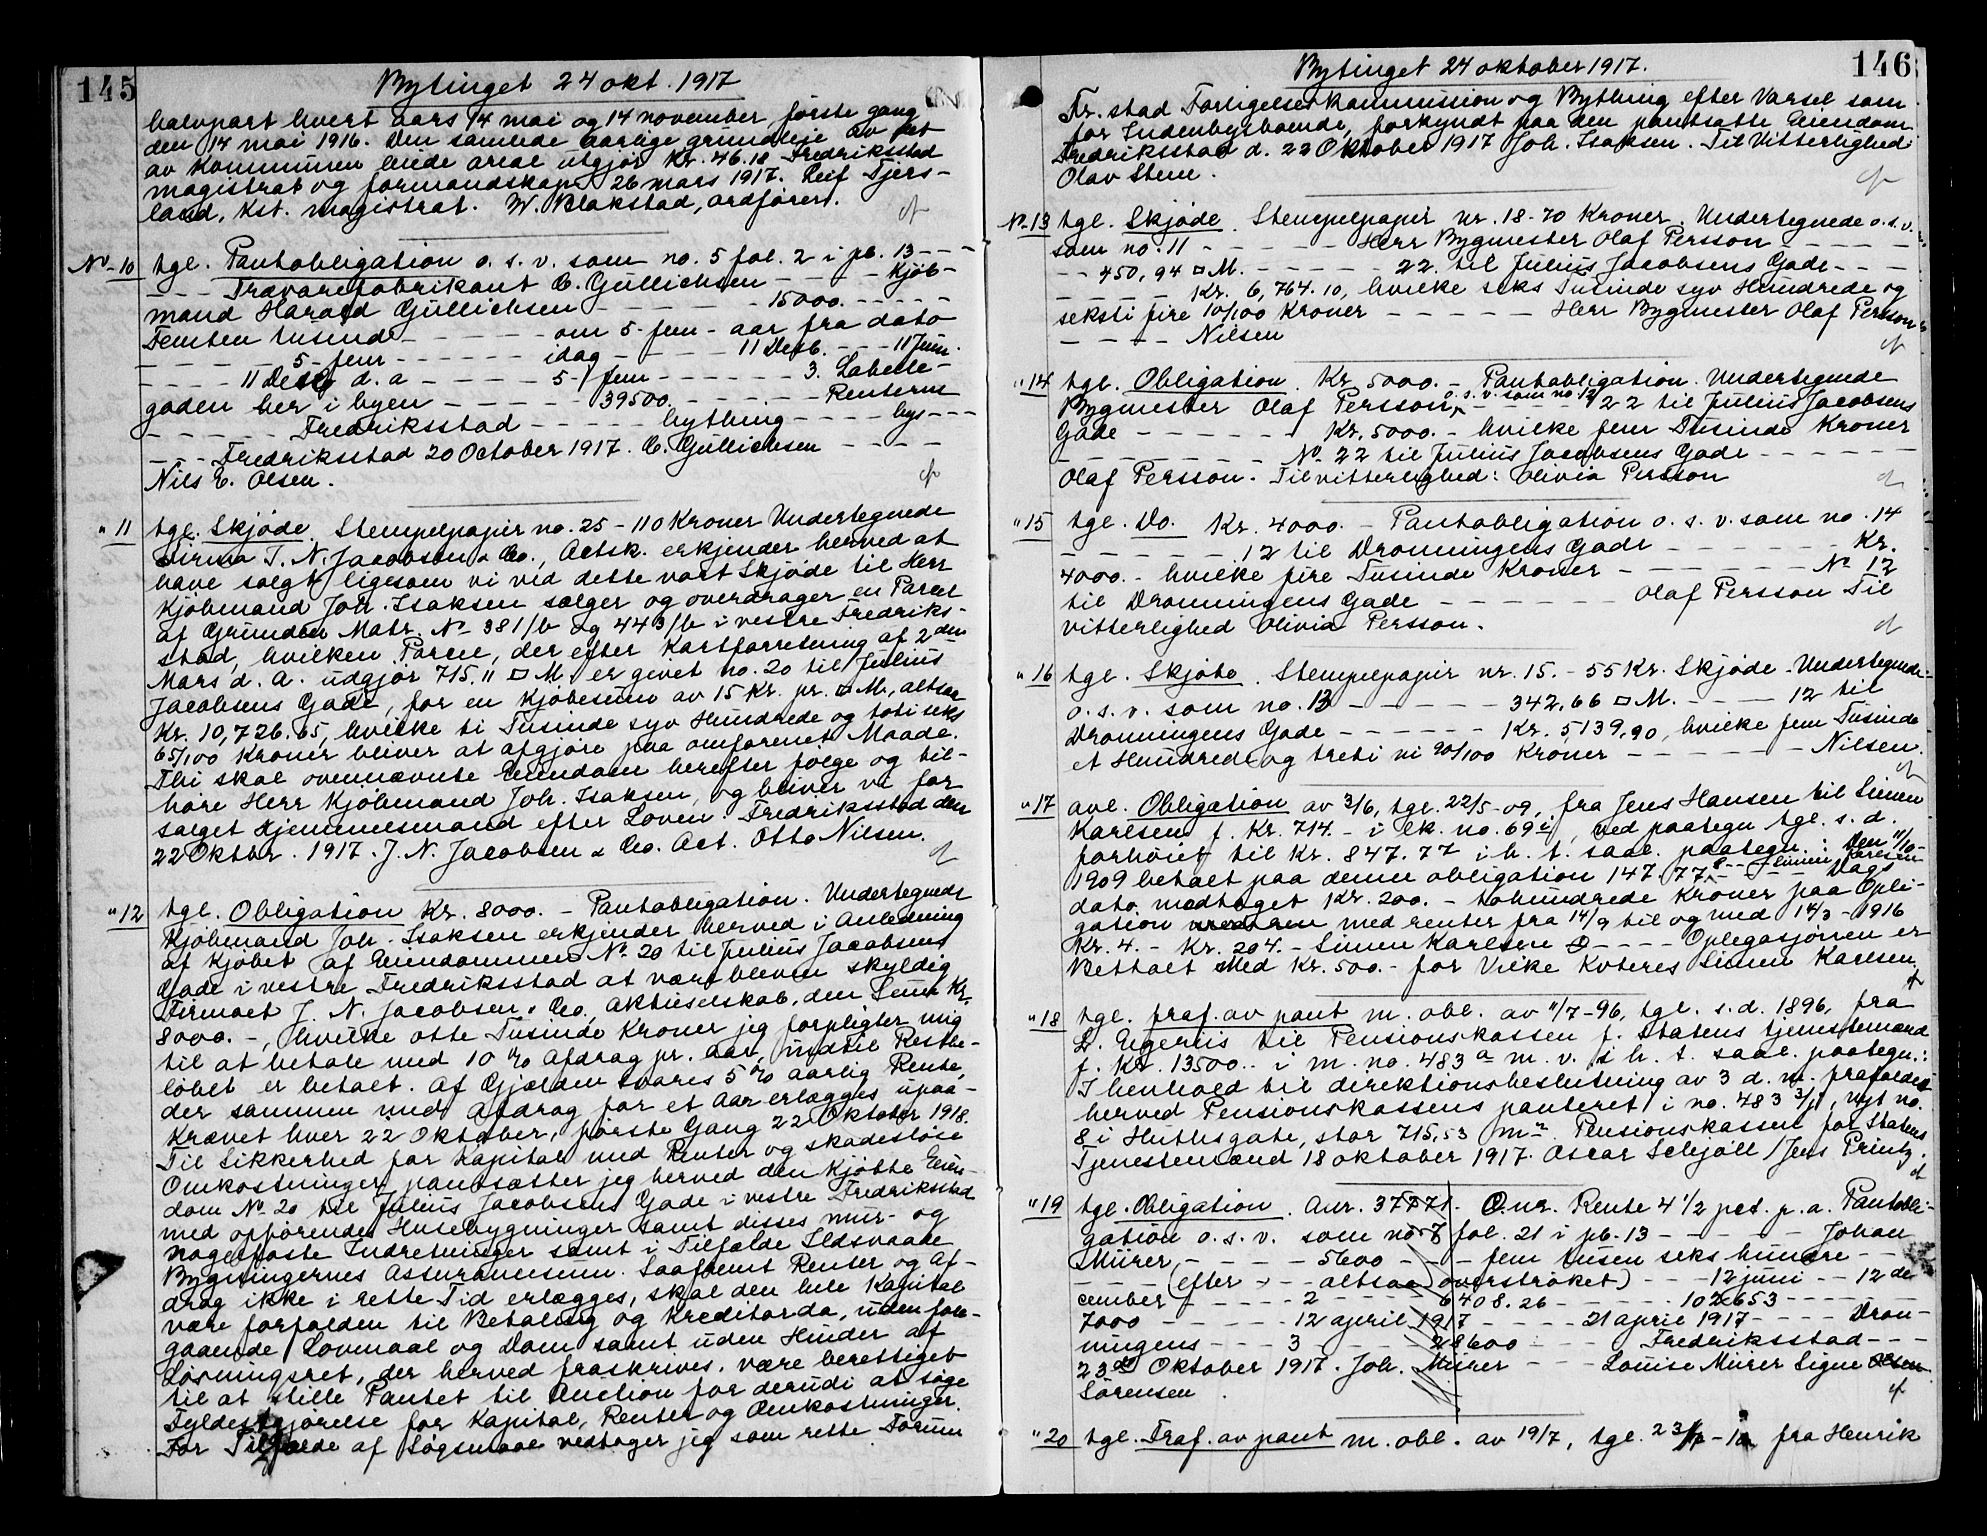 145
Bytinget 24 okt. 1917
halvpart hvert aars 14 mai og 14 november, første gang
den 14 mai 1916. Den samlede aarlige grundleje av det
av kommunen leiede areal utgjør Kr. 46.18 Fredriksstad
magistrat og formandskap 26 mars 1917. Leif Tjers-
land, kst. magistrat. W. Blakstad, ordfører.
No 10 tgl. Pantobligation o. s. v. som no. 5 fol. 2 i pb. 13 - - -
- - - Trævarefabrikant C. Gullichsen - - - - Kjøb-
mand Harald Gullichsen - - - - - 15000. - - - - -
Femten tusinde - - - - - om 5 - fem - aar fra dato
- - - - 5 - fem - - - - - - idag - - - - - 11 Decb. - - - 11 Juni.
- - - - 11 Decb d. a - - - - - 5 - fem - - - - - - 3. Labelle-
gaden her i byen - - - - - 39500. - - - - - - Renterne
- - - - - Fredriksstad - - - - - bything - - - - bys - - -
- - - Fredriksstad 20 October 1917. C. Gullichsen - - - -
Nils E. Olsen.
" 11 tgl. Skjøde. Stempelpapir no. 25 - 110 Kroner Undertegnede
Firma J. N. Jacobsen & Co., Actsk. erkjender herved at
have solgt ligesom vi ved dette vort Skjøde til Herr
Kjøbmand Joh. Isaksen sælger og overdrager en Parcel
af Grunden Matr. No 381/b og 443/b i vestre Fredriks-
stad, hvilken Parcel, der efter Kartforretning af 2den
Mars d. a. udgjør 715.11 □ M. er givet no. 20 til Julius
Jacobsens Gade, for en Kjøbesum av 15 Kr. pr. □ M., altsaa
Kr. 10,726.65, hvilke ti Tusinde syv Hundrede og toti seks
65/100 Kroner bliver at afgjøre paa omforenet Maade.
Thi skal ovennævnte Eiendom herefter følge og til-
høre Herr Kjøbmand Joh. Isaksen, og bliver vi for
salget Hjemmelsmand efter Loven. Fredriksstad den
22 Oktbr. 1917. J. N. Jacobsen & Co. Act. Otto Nilsen.
" 12 tgl. Obligation Kr. 8000. - Pantobligation. Undertegnede
Kjøbmand Joh. Isaksen erkjender herved i Anledning
af Kjøbet af Eiendommen No 20 til Julius Jacobsens
Gade i vestre Fredriksstad at være bleven skyldig
Firmaet J. N. Jacobsen & Co. aktieselskab, den Sum Kr.
8000. -, hvilke otte Tusinde Kroner jeg forpligter mig
til at betale med 10 % Afdrag pr. Aar, indtil Restbe-
løbet er betalt. Af Gjælden svares 5 % aarlig Rente,
der sammen med Afdrag for et Aar erlægges upaa-
krævet hver 22 Oktober, første Gang 22 Oktober 1918.
Til Sikkerhed for Kapital med Renter og skadesløse
Omkostninger pantsætter jeg herved den kjøbte Eien-
dom No 20 til Julius Jacobsens Gade i vestre Fredriksstad
med opførende Husebygninger samt disses mur- og
nagelfaste Indretninger samt i Tilfælde Ildsvaade
Bygningernes Assurancesum. Saafremt Renter og Af-
drag ikke i rette Tid erlægges, skal den hele Kapital
være forfalden til Betaling og Kreditor da, uden fore-
gaaende Lovmaal og Dom samt uden Hinder af
Løsningsret, der herved fraskrives, være berettiget
til at stille Pantet til Auction for derudi at søge
Fyldestgjørelse for Kapital, Renter og Omkostninger.
For Tilfælde af Søgsmaal vedtager jeg som rette Forum
146
Bytinget 24 oktober 1917.
Fr. stad Forligelseskommission og Bything efter Varsel som
for Indenbysboende, forkyndt paa den pantsatte Eiendom
Fredriksstad d. 22 Oktober 1917 Joh. Isaksen. Til Vitterlighed:
Olav Stene.
No 13 tgl. Skjøde. Stempelpapir nr. 18-70 Kroner. Undertegnede o.s.v.
som no. 11 - - - - - Herr Bygmester Olaf Persson - - - -
- - 450,94 □ M. - - - - - 22 til Julius Jacobsens Gade - - -
- - - - - Kr. 6,764.10, hvilke seks Tusinde syv Hundrede og
seksti fire 10/100 Kroner - - - - - Herr Bygmester Olaf Persson
- - - - Nilsen
" 14 tgl. Obligation. Kr 5000. - Pantobligation. Undertegnede
Bygmester Olaf Persson, o. s. v. som no 12 - - - 22 til Julius Jacobsens
Gade - - - - - - Kr. 5000. - hvilke fem Tusinde Kroner
- - - - - - - - No 22 til Julius Jacobsens Gade - - - - - -
Olaf Persson. Til vitterlighed: Olivia Persson
" 15 tgl. Do. Kr. 4000. - Pantobligation o. s. v. som no. 14
- - - - - - 12 til Dronningens Gade - - - - - - Kr.
4000. - hvilke fire Tusinde Kroner - - - - - - No 12
til Dronningens Gade - - - - - - Olaf Persson Til
vitterlighed Olivia Persson.
" 16 tgl. Skjøte. Stempelpapir nr. 15. - 55 Kr. Skjøde. Undertegnede
o. s. v. som no. 13 - - - - - 342,66 □ M. - - - - 12 til
Dronningens Gade - - - - - - Kr. 5139,90, hvilke fem Tusinde
et Hundrede og treti ni 90/100 Kroner - - - - - - Nilsen.
" 17 avl. Obligation av 3/6, tgl. 22/5 - 09, fra Jens Hansen til Simen
Karlsen f. Kr. 714. - i lk. no. 69 c, ved paategn tgl. s. d.
forhøiet til Kr. 847.77 i h. t. saal. paategn.: Den 11/10 -
1909 betalt paa denne obligation 147.77 - - Simen Karlsen - - Dags
dato modtaget Kr. 200. - tohundrede Kroner paa Opli-
gation med renter fra 14/9 til og med 14/3 - 1916
Kr. 4. - Kr. 204. - Simen Karlsen - - - - Oplegasjonen er
Bethalt Med Kr. 500. - for Vike Kvteres Simen Karlsen.
" 18 tgl. fraf. av pant m. obl. av 11/7-96, tgl. s. d. 1896, fra
D. Egerits til Pensionskassen f. Statens tjenestemænd
f. Kr. 13500.. i m. no. 483 a m. v. i h. t. saal. paategn.:
I henhold til direktionsbeslutning av 3 d. m. frafaldes
herved Pensionskassens panteret i no. 483 3/11, nyt no.
8 i Huthsgate, stor 715,53 m2. Pensionskassen for Statens
Tjenestemænd 18 oktober 1917. Oscar Schjøll / Jens Printz.
" 19 tgl. Obligation. Anr. 37771. O. nr. Rente 4 1/2 pct. p. a. Pantobli-
gation o. s. v. som no 7 fol. 21 i pb. 13 - - - - - Johan
Mürer - - - - - 5600 - - - fem tusen seks hundre - -
- - - (efter - - - altsaa overstrøket) - - - 12 juni - - 12 de
cember - - - - - 2 - - - - - 6408.26 - - - - - 102653 - - - - -
7000 - - - - - 12 april 1917 - - - - - 21 april 1917 - - - - Dron-
ningens - - - 3 - - - - - 28600 - - - - Fredriksstad - - -
23de Oktober 1917. Joh. Mürer - - - Louise Mürer Signe Olsen
Sörensen.
" 20 tgl. Fraf. av pant m. obl. av 19/7, tgl. fra Henrik